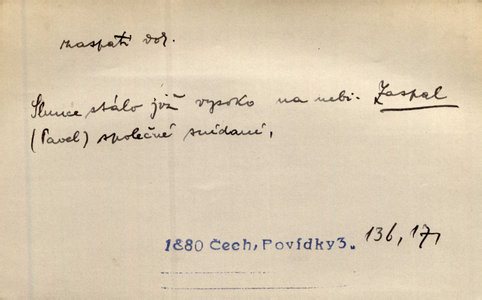 zaspati dok.
Slunce stálo již vysoko na nebi. Zaspal
(Pavel) společné snídaní,
1880 Čech, Povídky 3. 136, 17,